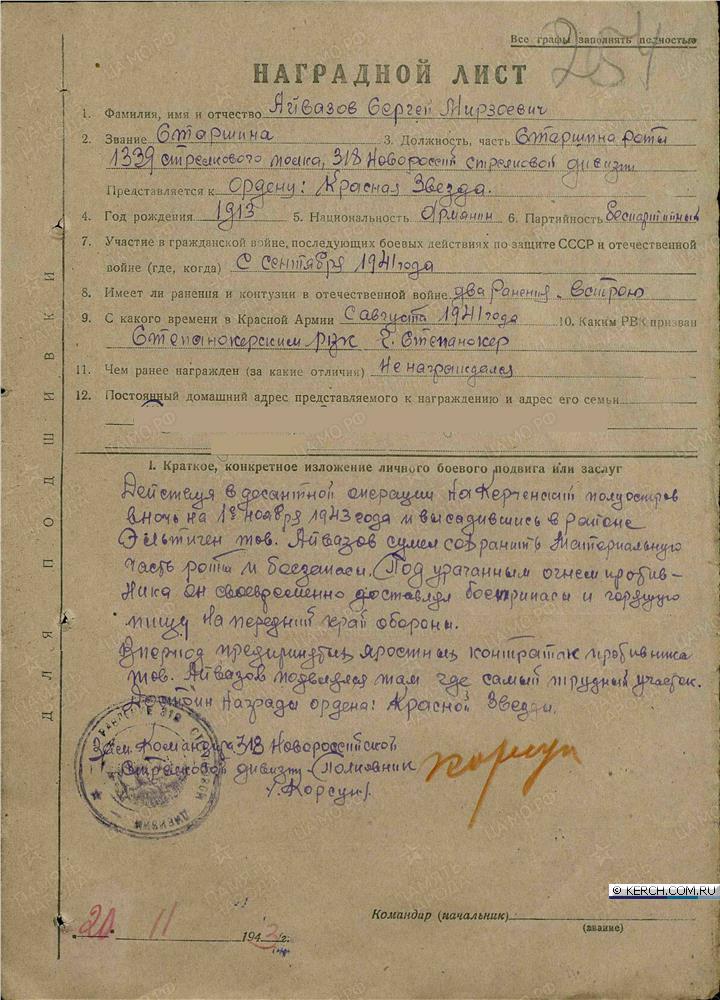 Все графы заполнять полностью
254
НАГРАДНОЙ ЛИСТ
1. Фамилия, имя и отчество Айвазов Сергей Мирзоевич
2. Звание Старшина 3. Должность, часть Старшина роты
1339 стрелкового полка, 318 Новороссий стрелковой дивизии
Представляется к ордену: Красная Звезда.
4. Год рождения 1913 5. Национальность Армянин 6. Партийность Беспартийный
7. Участие в гражданской войне, последующих боевых действиях по защите СССР и отечественной
войне (где, когда) С сентября 1941 года
8. Имеет ли ранения и контузии в отечественной войне два ранения. В строю
9. С какого времени в Красной Армии С августа 1941 года 10. Каким РВК призван
Степанокерским РВК г. Степанокер
11. Чем ранее награжден (за какие отличия) Не награждался
12. Постоянный домашний адрес представляемого к награждению и адрес его семьи
I. Краткое, конкретное изложение личного боевого подвига или заслуг
Действуя в десантной операции на Керченский полуостров
в ночь на 1е ноября 1943 года и высадившись в районе
Эльтиген тов. Айвазов сумел сохранить материальную
часть роты и боезапасы. Под ураганным огнем против-
ника он своевременно доставлял боеприпасы и горячую
пищу на передний край обороны.
В период предпринятых яростных контратак противника
тов. Айвазов появлялся там где самый трудный участок.
Достоин награды ордена: Красной Звезды.
Зам. Командира 318 Новороссийской
стрелковой дивизии Полковник
/Корсун/.
Корсун
ДЛЯ ПОДШИВКИ
Командир (начальник)
(звание)
21. 11 1943 г.
© KERCH.COM.RU